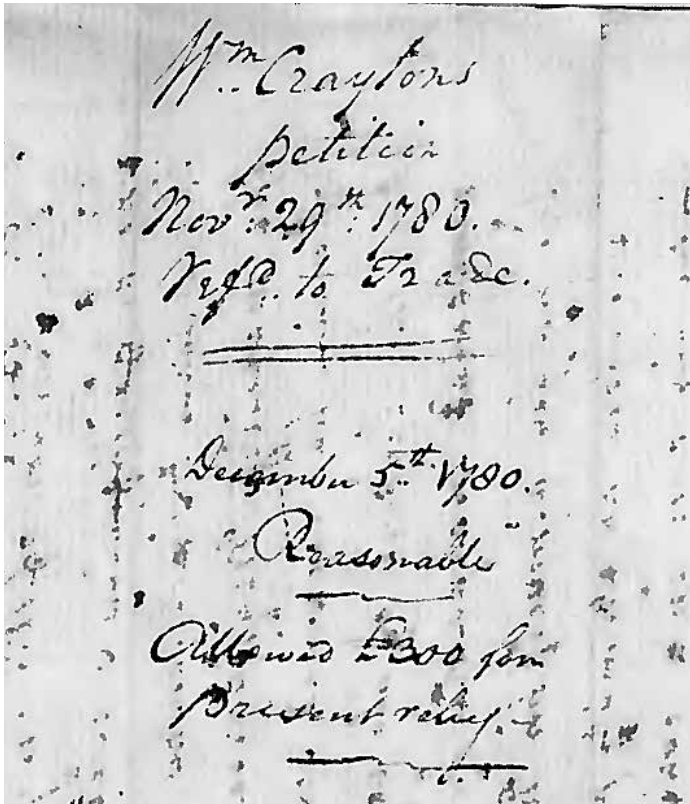 Wm Craytons
petition
Novr. 29th 1780.
Refd. to Trade.
December 5th 1780.
Reasonable
Allowed £300 for
present relief